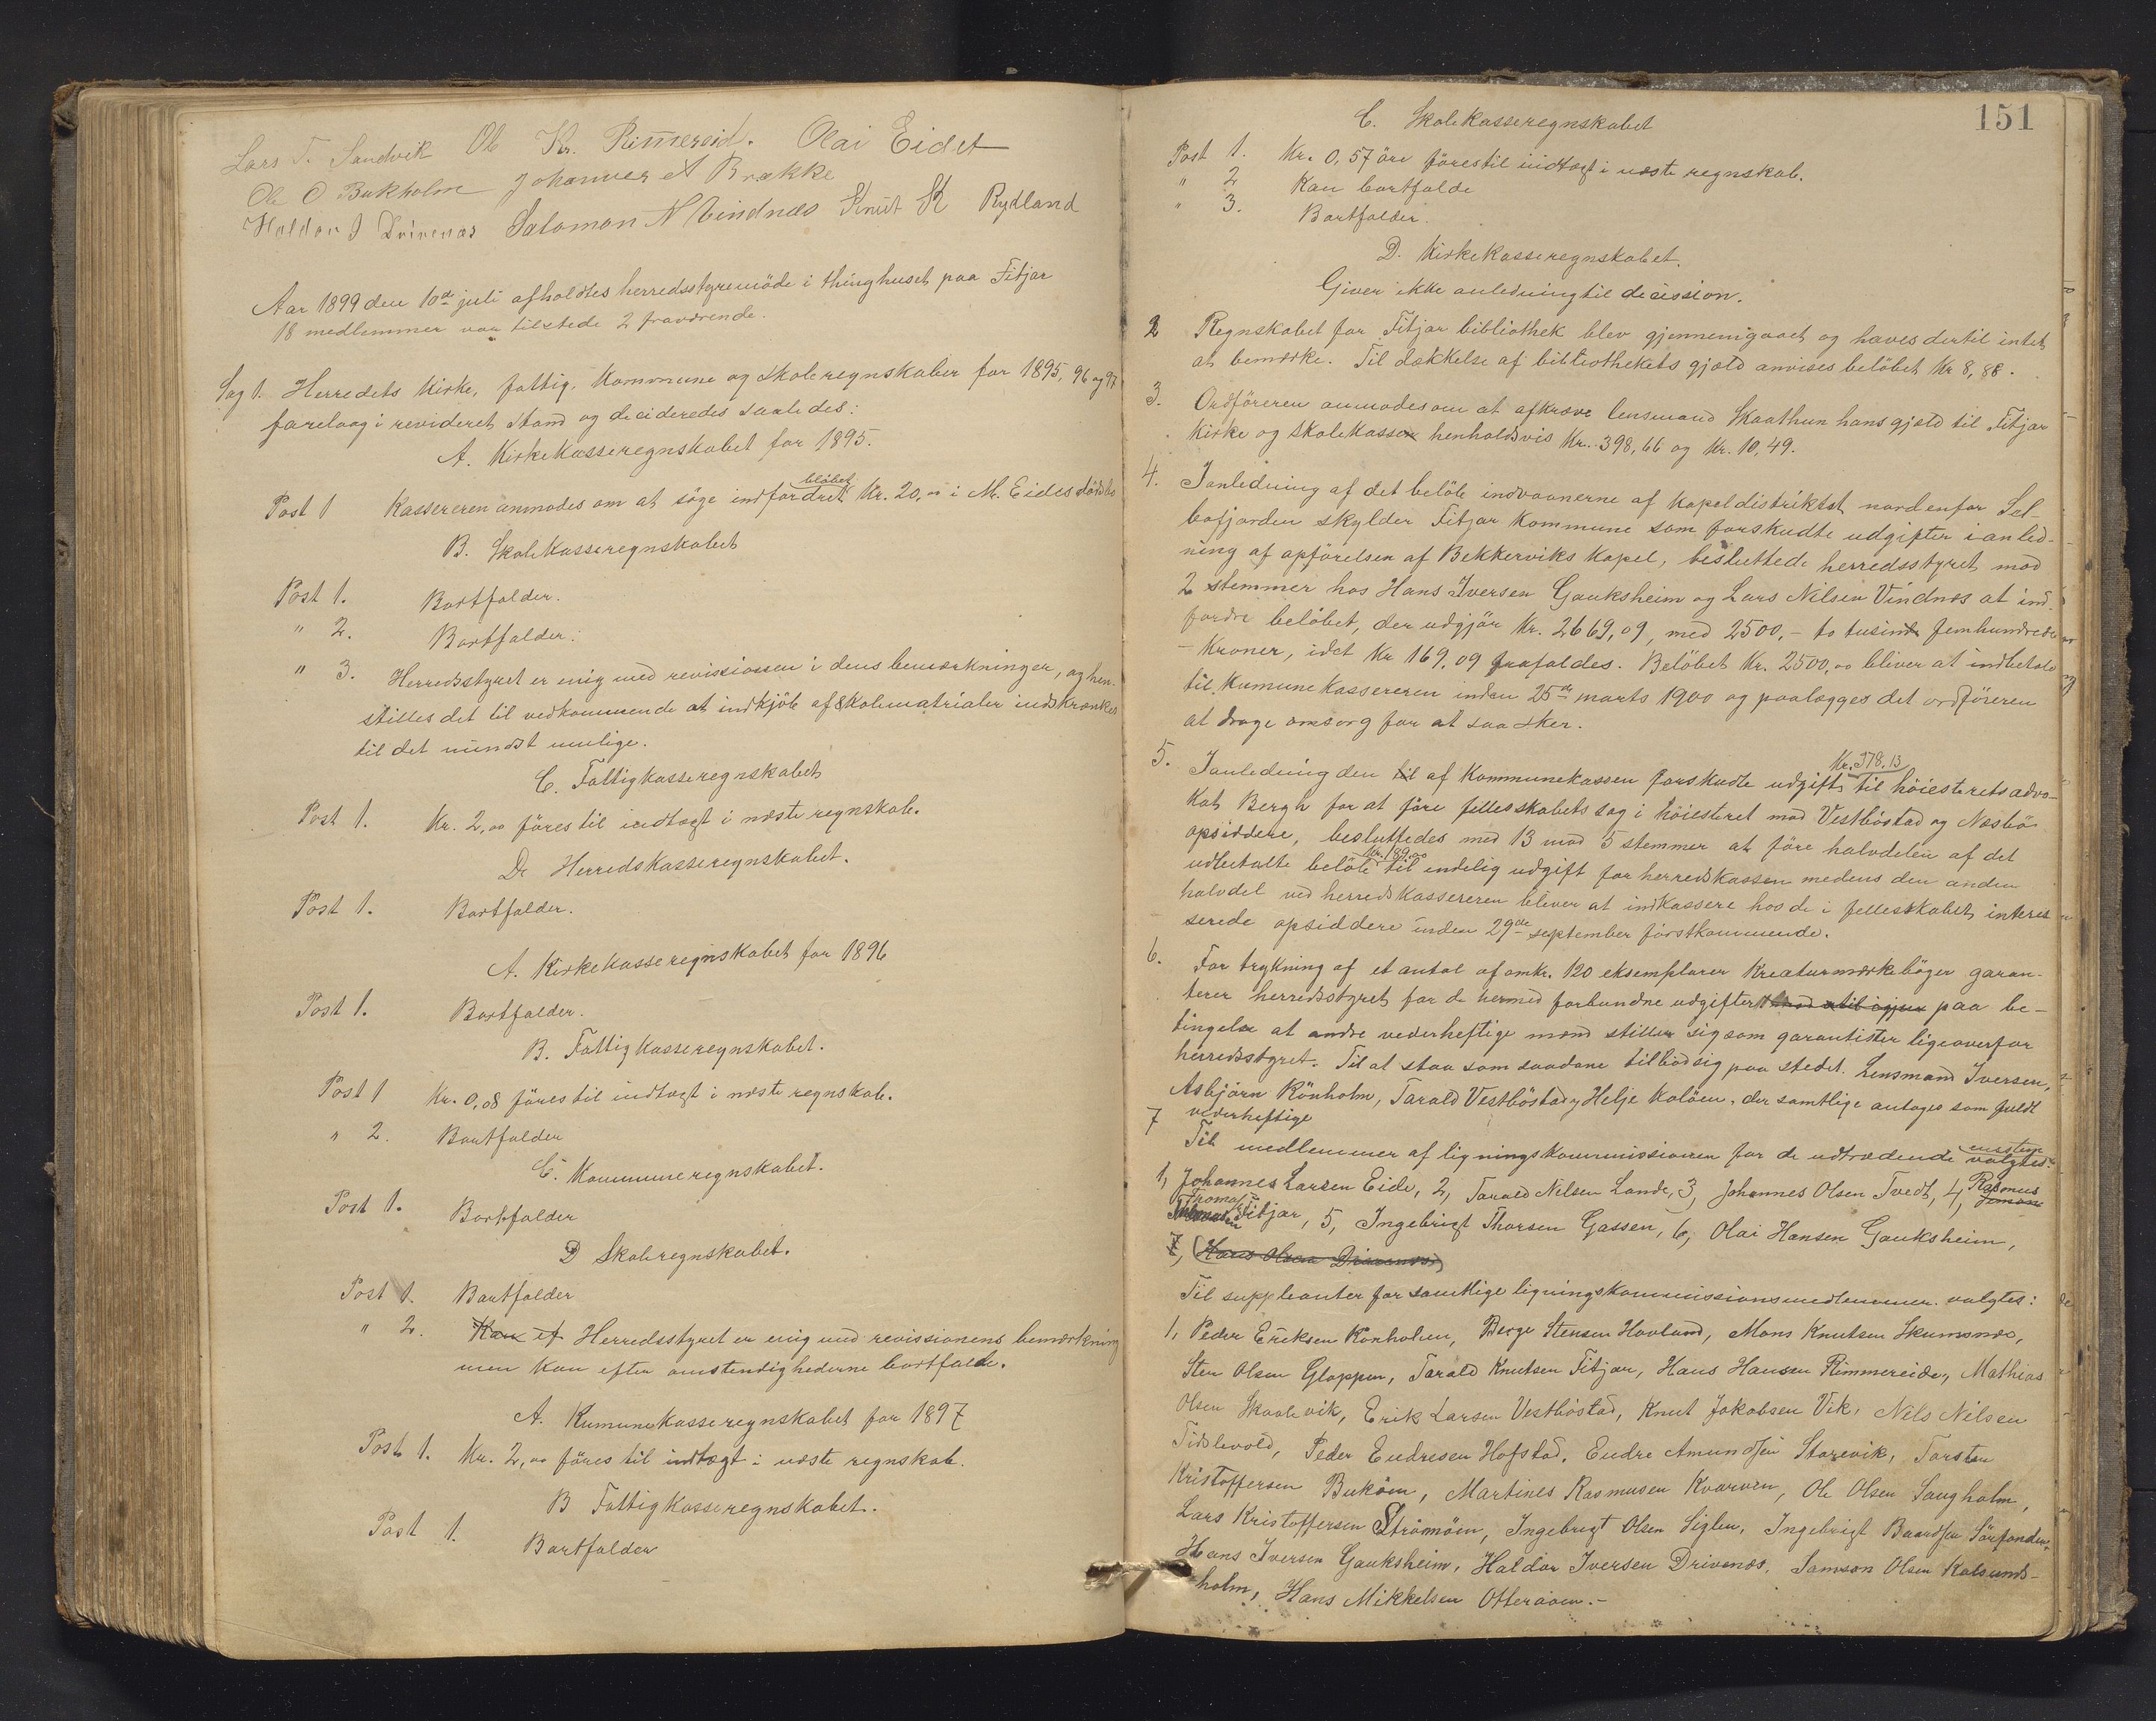 Lars T. Sandvik Ole Kr. Rimmereid. Olai Eidet
Ole O Bukholm Johannes A Brække
Haldor I Drivenæs Salomon N Vindnæs Knut K Rydland
Aar 1899 den 10de juli afholdtes herredsstyremöde i thinghuset paa Fitjar
18 medlemmer var tilstede 2 fraværende.
Sag 1. Herredets Kirke, fattig, Kommune og Skoleregnskaber for 1895, 96 og 97
forelaag i revideret stand og decideredes saaledes:
A. Kirkekasseregnskabet for 1895.
belöbet
Post 1 Kassereren anmodes om at söge indfordret Kr. 20,00 i M. Eides dödsbo
B. Skolekasseregnskabet
Post 1. Bortfalder.
" 2. Bortfalder.
" 3. Herredsstyret er enig med revissionen i dens bemærkninger, og hen-
stilles det til vedkommende at indkjöb af skolematrialer indskrænkes
til det mindst mulige.
C. Fattigkasseregnskabet
Post 1. Kr. 2,00 föres til indtægt i næste regnskab.
D. Herredskasseregnskabet.
Post 1. Bortfalder.
A. Kirkekasseregnskabet for 1896
Post 1. Bortfalder.
B. Fattigkasseregnskabet.
Post 1 Kr. 0,08 föres til indtægt i næste regnskab.
" 2. Bortfalder
C. Kommuneregnskabet.
Post 1. Bortfalder
D Skoleregnskabet.
Post 1. Bortfalder
" 2. Kan ef Herredsstyret er enig med revissionens bemærkning
men kan efter omstendighederne bortfalde.
A. Kumunekasseregnskabet for 1897
Post 1. Kr. 2,00 föres til indtægt i næste regnskab.
B Fattigkasseregnskabet.
Post 1. Bortfalder
151
C. Skolekasseregnskabet
Post 1. Kr. 0,57 öre föres til indtægt i næste regnskab.
" 2 Kan bortfalde
" 3. Bortfalder.
D. Kirkekasseregnskabet.
Giver ikke anledning til decission.
2 Regnskabet for Fitjar bibliothek blev gjennemgaaet og haves dertil intet
at bemærke. Til dækkelse af bibliothekets gjæld anvises belöbet Kr 8,88.
3. Ordföreren anmodes om at afkræve lensmand Skaathun hans gjæld til Fitjar
Kirke og Skolekasse henholdsvis Kr. 398,66 og Kr. 10,49.
4. Ianledning af det belöb indvaanerne af Kapeldistriktet nordenfor Sel-
böfjorden skylder Fitjar Kommune som forskudte udgifter i anled-
ning af opförelsen af Bekkerviks Kapel, besluttede herredsstyret mod
2 stemmer hos Hans Iversen Gauksheim og Lars Nilsen Vindnes at ind-
fordre belöbet, der udgjör Kr. 2669,09, med 2500,- to tusinde femhundrede
- Kroner, idet Kr 169,09 frafaldes. Belöbet Kr. 2500,00 bliver at indbetale
til Kumunekassereren inden 25de marts 1900 og paalægges det ordföreren
at drage omsorg for at saa sker.
Kr. 378.13
5. Ianledning den til af Kommunekassen forskudte udgift til höiesteretsadvo-
kat Bergh for at före fellesskabets sag i höiesteret mod Vestböstad og Næsbö
opsiddere, besluttedes med 13 mod 5 stemmer at före halvdelen af det
Kr. 189,00
udbetalte belöb til endelig udgift for herredskassen medens den anden
halvdel ved herredskassereren bliver at indkassere hos de i fellesskabet interes
serede opsiddere inden 29de september förstkommende.
6. For trykning af et antal af omkr. 120 eksemplarer Kreaturmærkeböger garan-
terer herredsstyret for de hermed forbundne udgifter paa be-
tingelse at andre vederheftige mænd stiller sig som garantister ligeoverfor
herredsstyret. Til at staa som saadane tilböd sig paa stedet. Lensmand Iversen,
Asbjörn Rönholm, Tarald Vestböstad, Helje Kalöen, der samtlige antages som fuldt
vederheftige
7 Til medlemmer af ligningskommissionen for de udtrædende valgtes:
enstem
1, Johannes Larsen Eide, 2, Tarald Nilsen Lande, 3, Johannes Olsen Tvedt, 4, Rasmus
Thomas Fitjar, 5, Ingebrigt Thorsen Gassen, 6, Olai Hansen Gauksheim,
7, (Hans Olsen Drivenæs)
Til suppleanter for samtlige ligningskommissionsmedlemmer valgtes:
1, Peder Eriksen Rönholmen, Berge Stensen Hovland, Mons Knutsen Skumsnæs,
Sten Olsen Gloppen, Tarald Knutsen Fitjar, Hans Hansen Rimmereide, Mathias
Olsen Skaalevik, Erik Larsen Vestböstad, Knut Jakobsen Vik, Nils Nilsen
Tislevold, Peder Endresen Hofstad, Endre Amundsen Storevik, Torsten
Kristoffersen Buköen, Martines Rasmusen Kvarven, Ole Olsen Saugholm,
Lars Kristoffersen Strömöen, Ingebrigt Olsen Siglen, Ingebrigt Baardsen Sörfonden,
Hans Iversen Gauksheim, Haldor Iversen Drivenæs, Samson Olsen Kalsunds-
holm, Hans Mikkelsen Otteröen.-